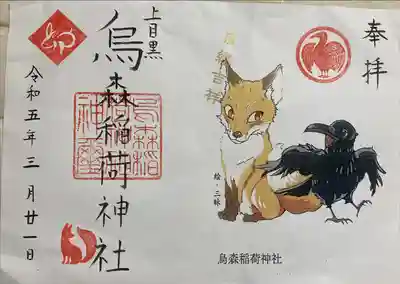 奉拝
絵・三昧
烏森稲荷神社
上目黒
烏森稲荷神社
令和五年三月廿一日